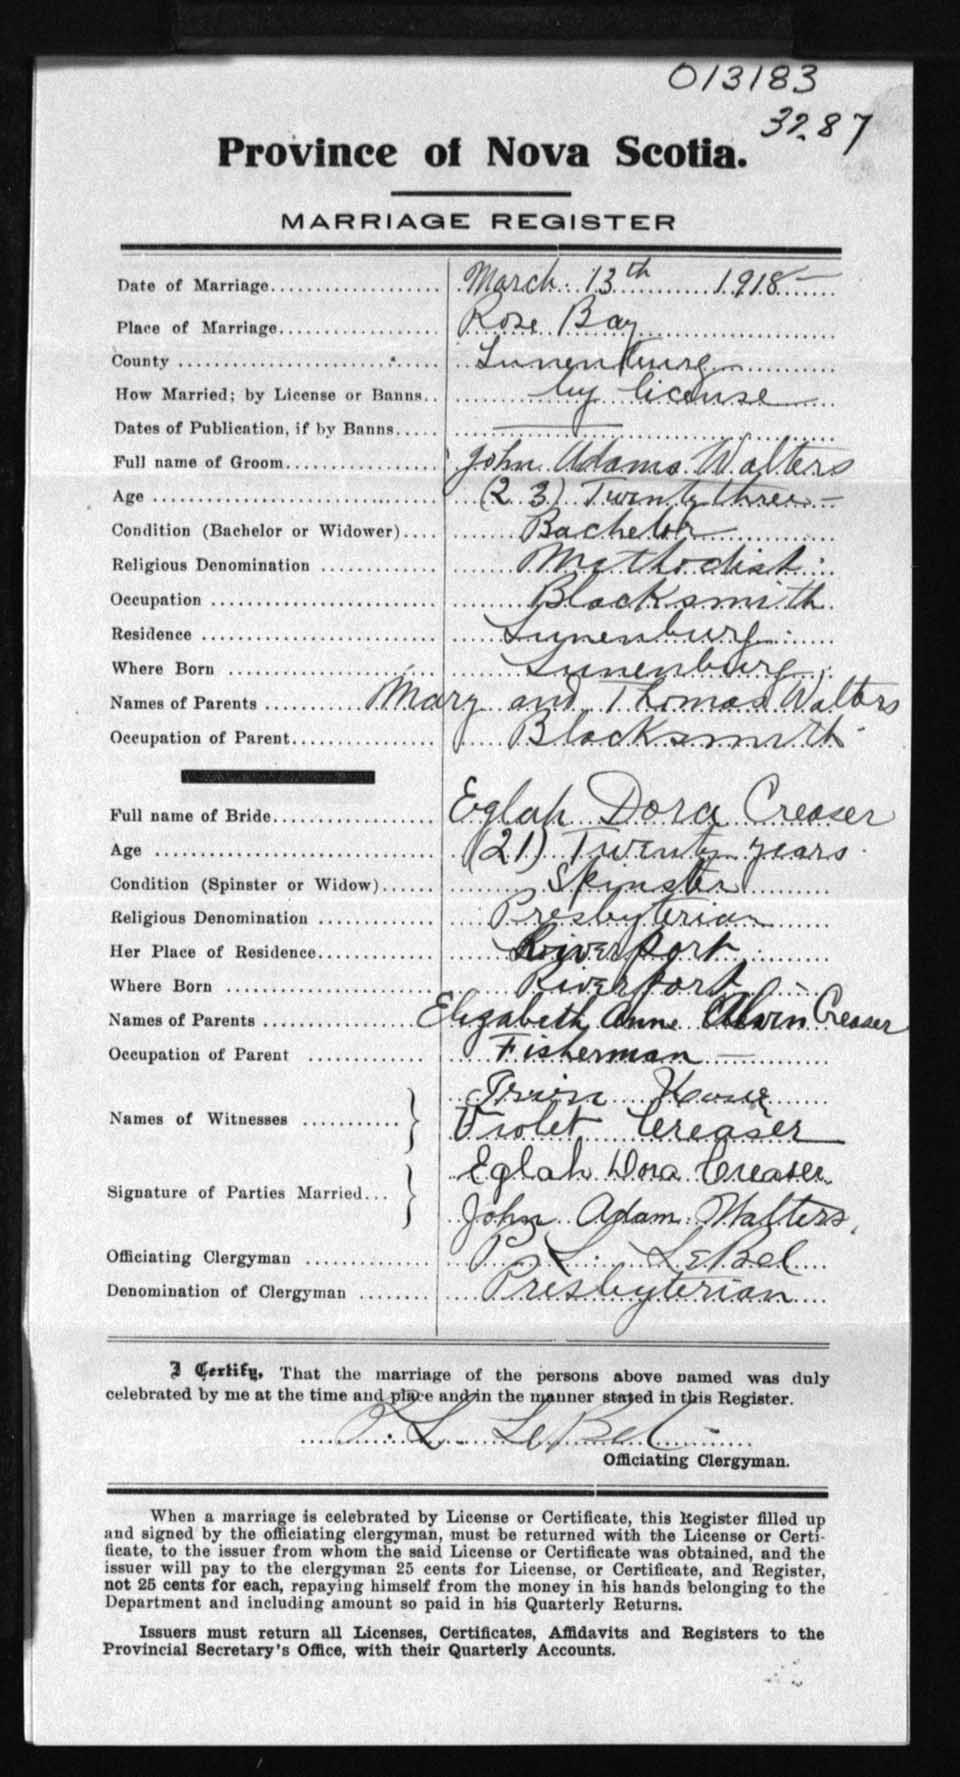 013183
3287
Province of Nova Scotia.
MARRIAGE REGISTER
Date of Marriage.................... March 13th 1918
Place of Marriage................... Rose Bay
County .............................. Lunenburg
How Married; by License or Banns.. by license
Dates of Publication, if by Banns..... ———
Full name of Groom................... John Adams Walters
Age .................................. (23) Twenty three —
Condition (Bachelor or Widower).... Bachelor
Religious Denomination .............. Methodist
Occupation ........................... Blacksmith
Residence ............................ Lunenburg
Where Born .......................... Lunenburg
Names of Parents .......... Mary and Thomas Walters
Occupation of Parent................. Blacksmith
Full name of Bride................... Eglah Dora Creaser
Age .................................. (21) Twenty years
Condition (Spinster or Widow)...... Spinster
Religious Denomination .............. Presbyterian
Her Place of Residence.............. Riverport
Where Born .......................... Riverport
Names of Parents ................ Elizabeth Anne Alvin Creaser
Occupation of Parent .............. Fisherman —
Names of Witnesses ........... }
Violet Creaser
Signature of Parties Married... } Eglah Dora Creaser
John Adam Walters
Officiating Clergyman ............... P. L. LeBel
Denomination of Clergyman ........ Presbyterian
I Certify, That the marriage of the persons above named was duly
celebrated by me at the time and place and in the manner stated in this Register.
P. L. LeBel
Officiating Clergyman.
When a marriage is celebrated by License or Certificate, this Register filled up
and signed by the officiating clergyman, must be returned with the License or Certi-
ficate, to the issuer from whom the said License or Certificate was obtained, and the
issuer will pay to the clergyman 25 cents for License, or Certificate, and Register,
not 25 cents for each, repaying himself from the money in his hands belonging to the
Department and including amount so paid in his Quarterly Returns.
Issuers must return all Licenses, Certificates, Affidavits and Registers to the
Provincial Secretary's Office, with their Quarterly Accounts.